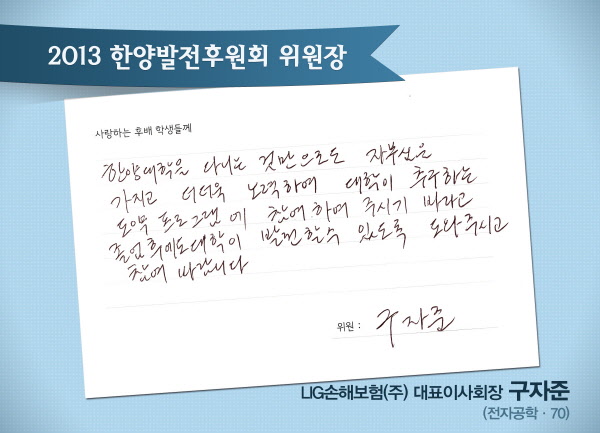 2013 한양발전후원회 위원장
사랑하는 후배 학생들께
한양대학을 다니는 것만으로도 자부심을
가지고 더더욱 노력하여 대학이 추구하는
도약 프로그램에 참여하여 주시기 바라고
졸업후에도 대학이 발전할수 있도록 도와주시고
참여 바랍니다
위원 : 구자준
LIG손해보험(주) 대표이사회장 구자준
(전자공학 · 70)